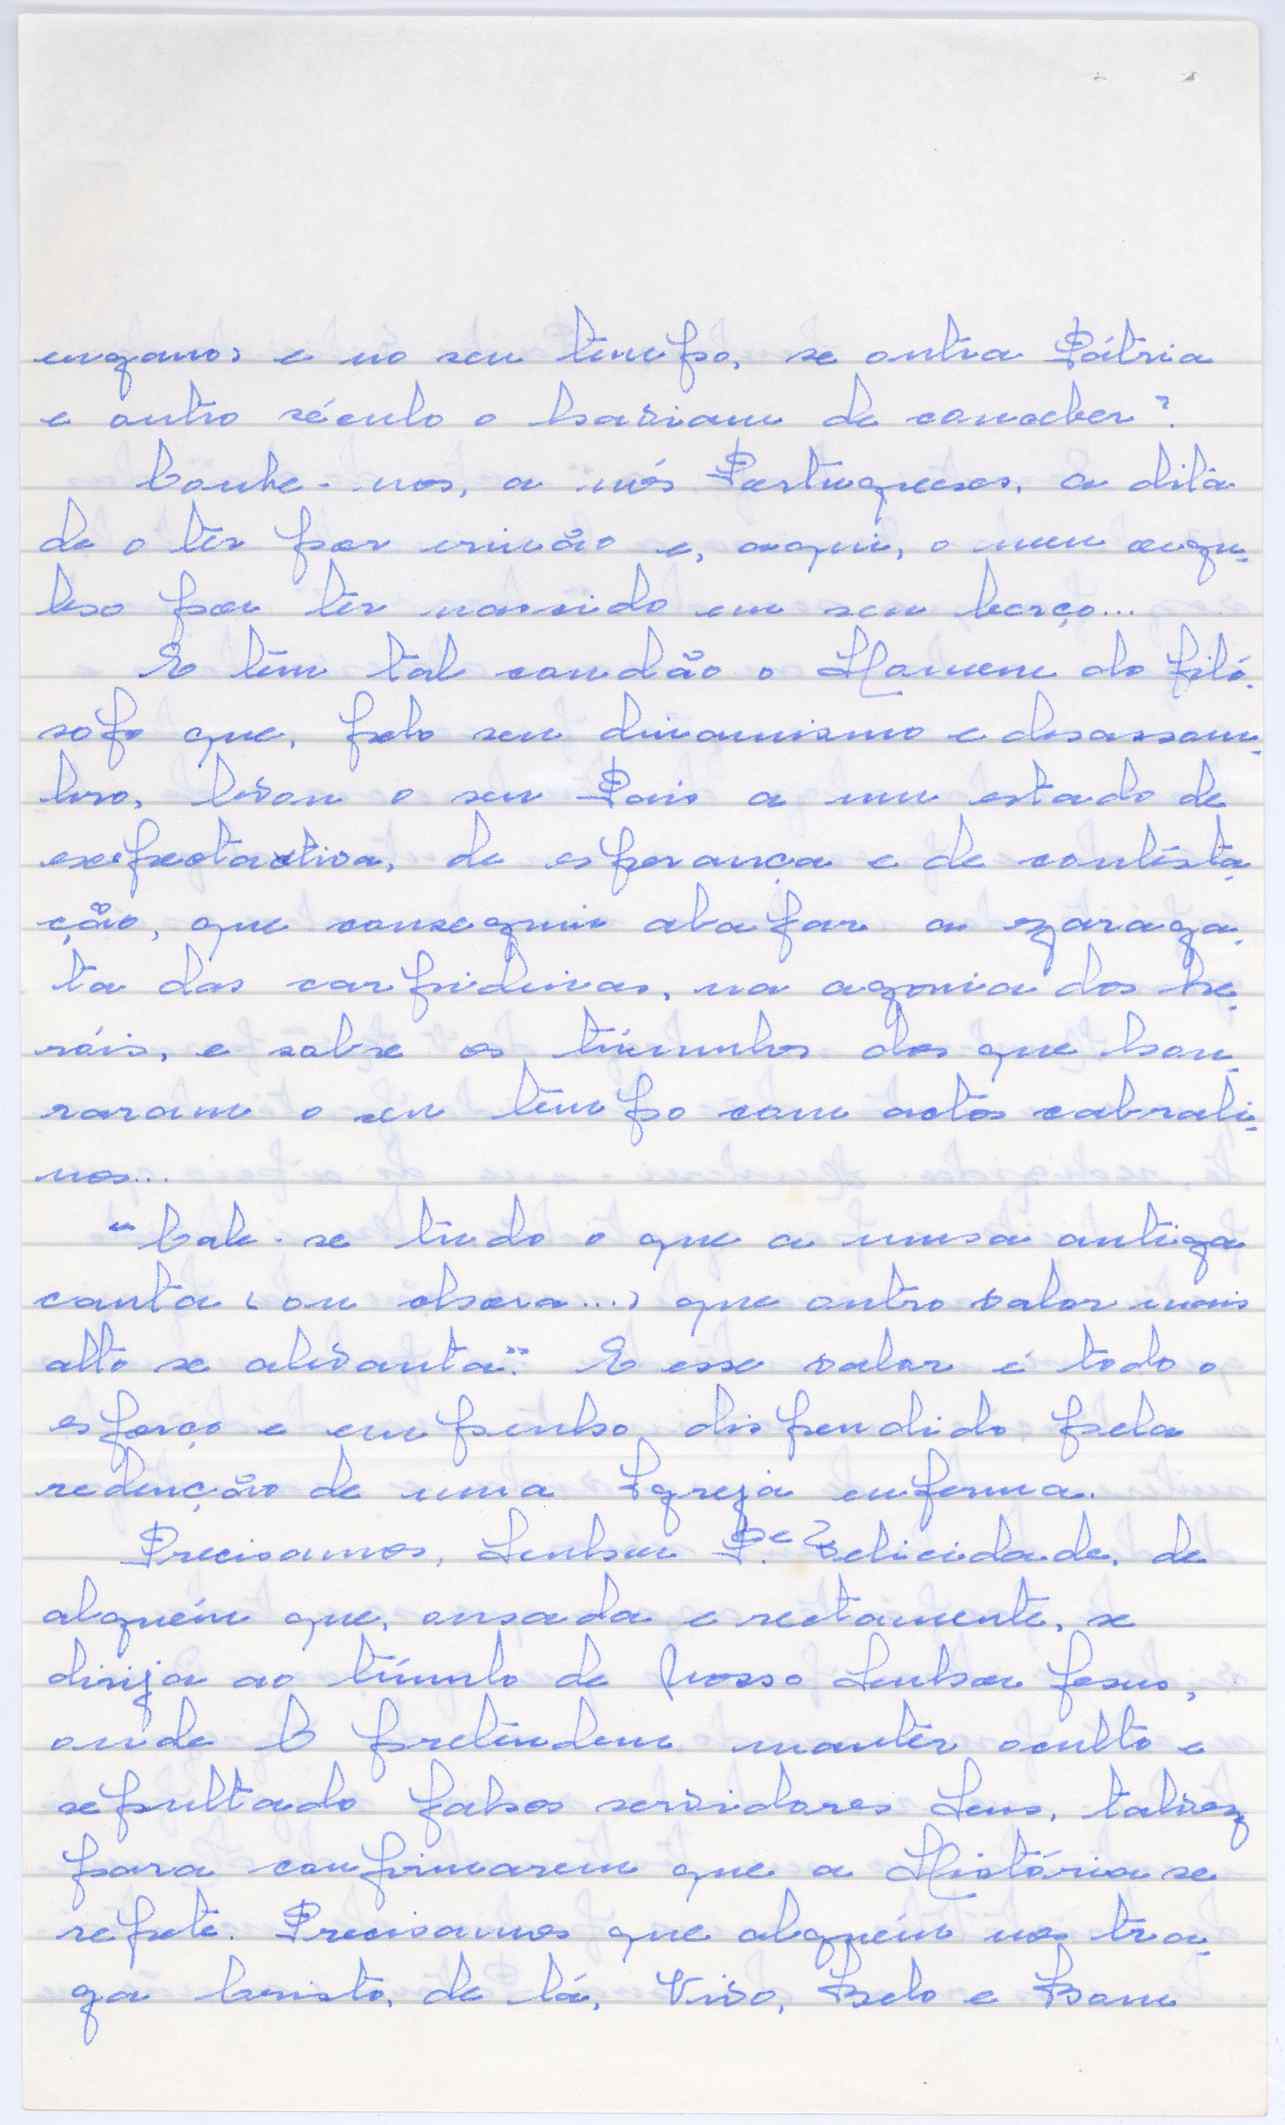 engano) e no seu tempo, se outra Pátria
e outro século o haviam de conceber?
Coube-nos, a nós Portugueses, a dita
de o ter por irmão e, aqui, o meu orgu-
lho por ter nascido em seu berço...
E tem tal condão o Homem do filó-
sofo que, pelo seu dinamismo e desassom-
bro, levou o seu País a um estado de
expectactiva, de esperança e de contesta-
ção, que conseguiu abafar a zaraga-
ta das carpideiras, na agonia dos he-
róis, e sobre os túmulos dos que hon-
raram o seu tempo com actos cabrali-
nos...
"Cale-se tudo o que a musa antiga
canta (ou chora...) que outro valor mais
alto se alevanta". E esse valor é todo o
esforço e empenho dispendido pela
redenção de uma Igreja enferma.
Precisamos, Senhor P.e Felicidade, de
alguém que, ousada e rectamente, se
dirija ao túmulo de Nosso Senhor Jesus,
onde O pretendem manter oculto e
sepultado falsos servidores Seus, talvez
para confirmarem que a História se
repete. Precisamos que alguém nos tra-
ga Cristo, de lá, Vivo, Belo e Bom